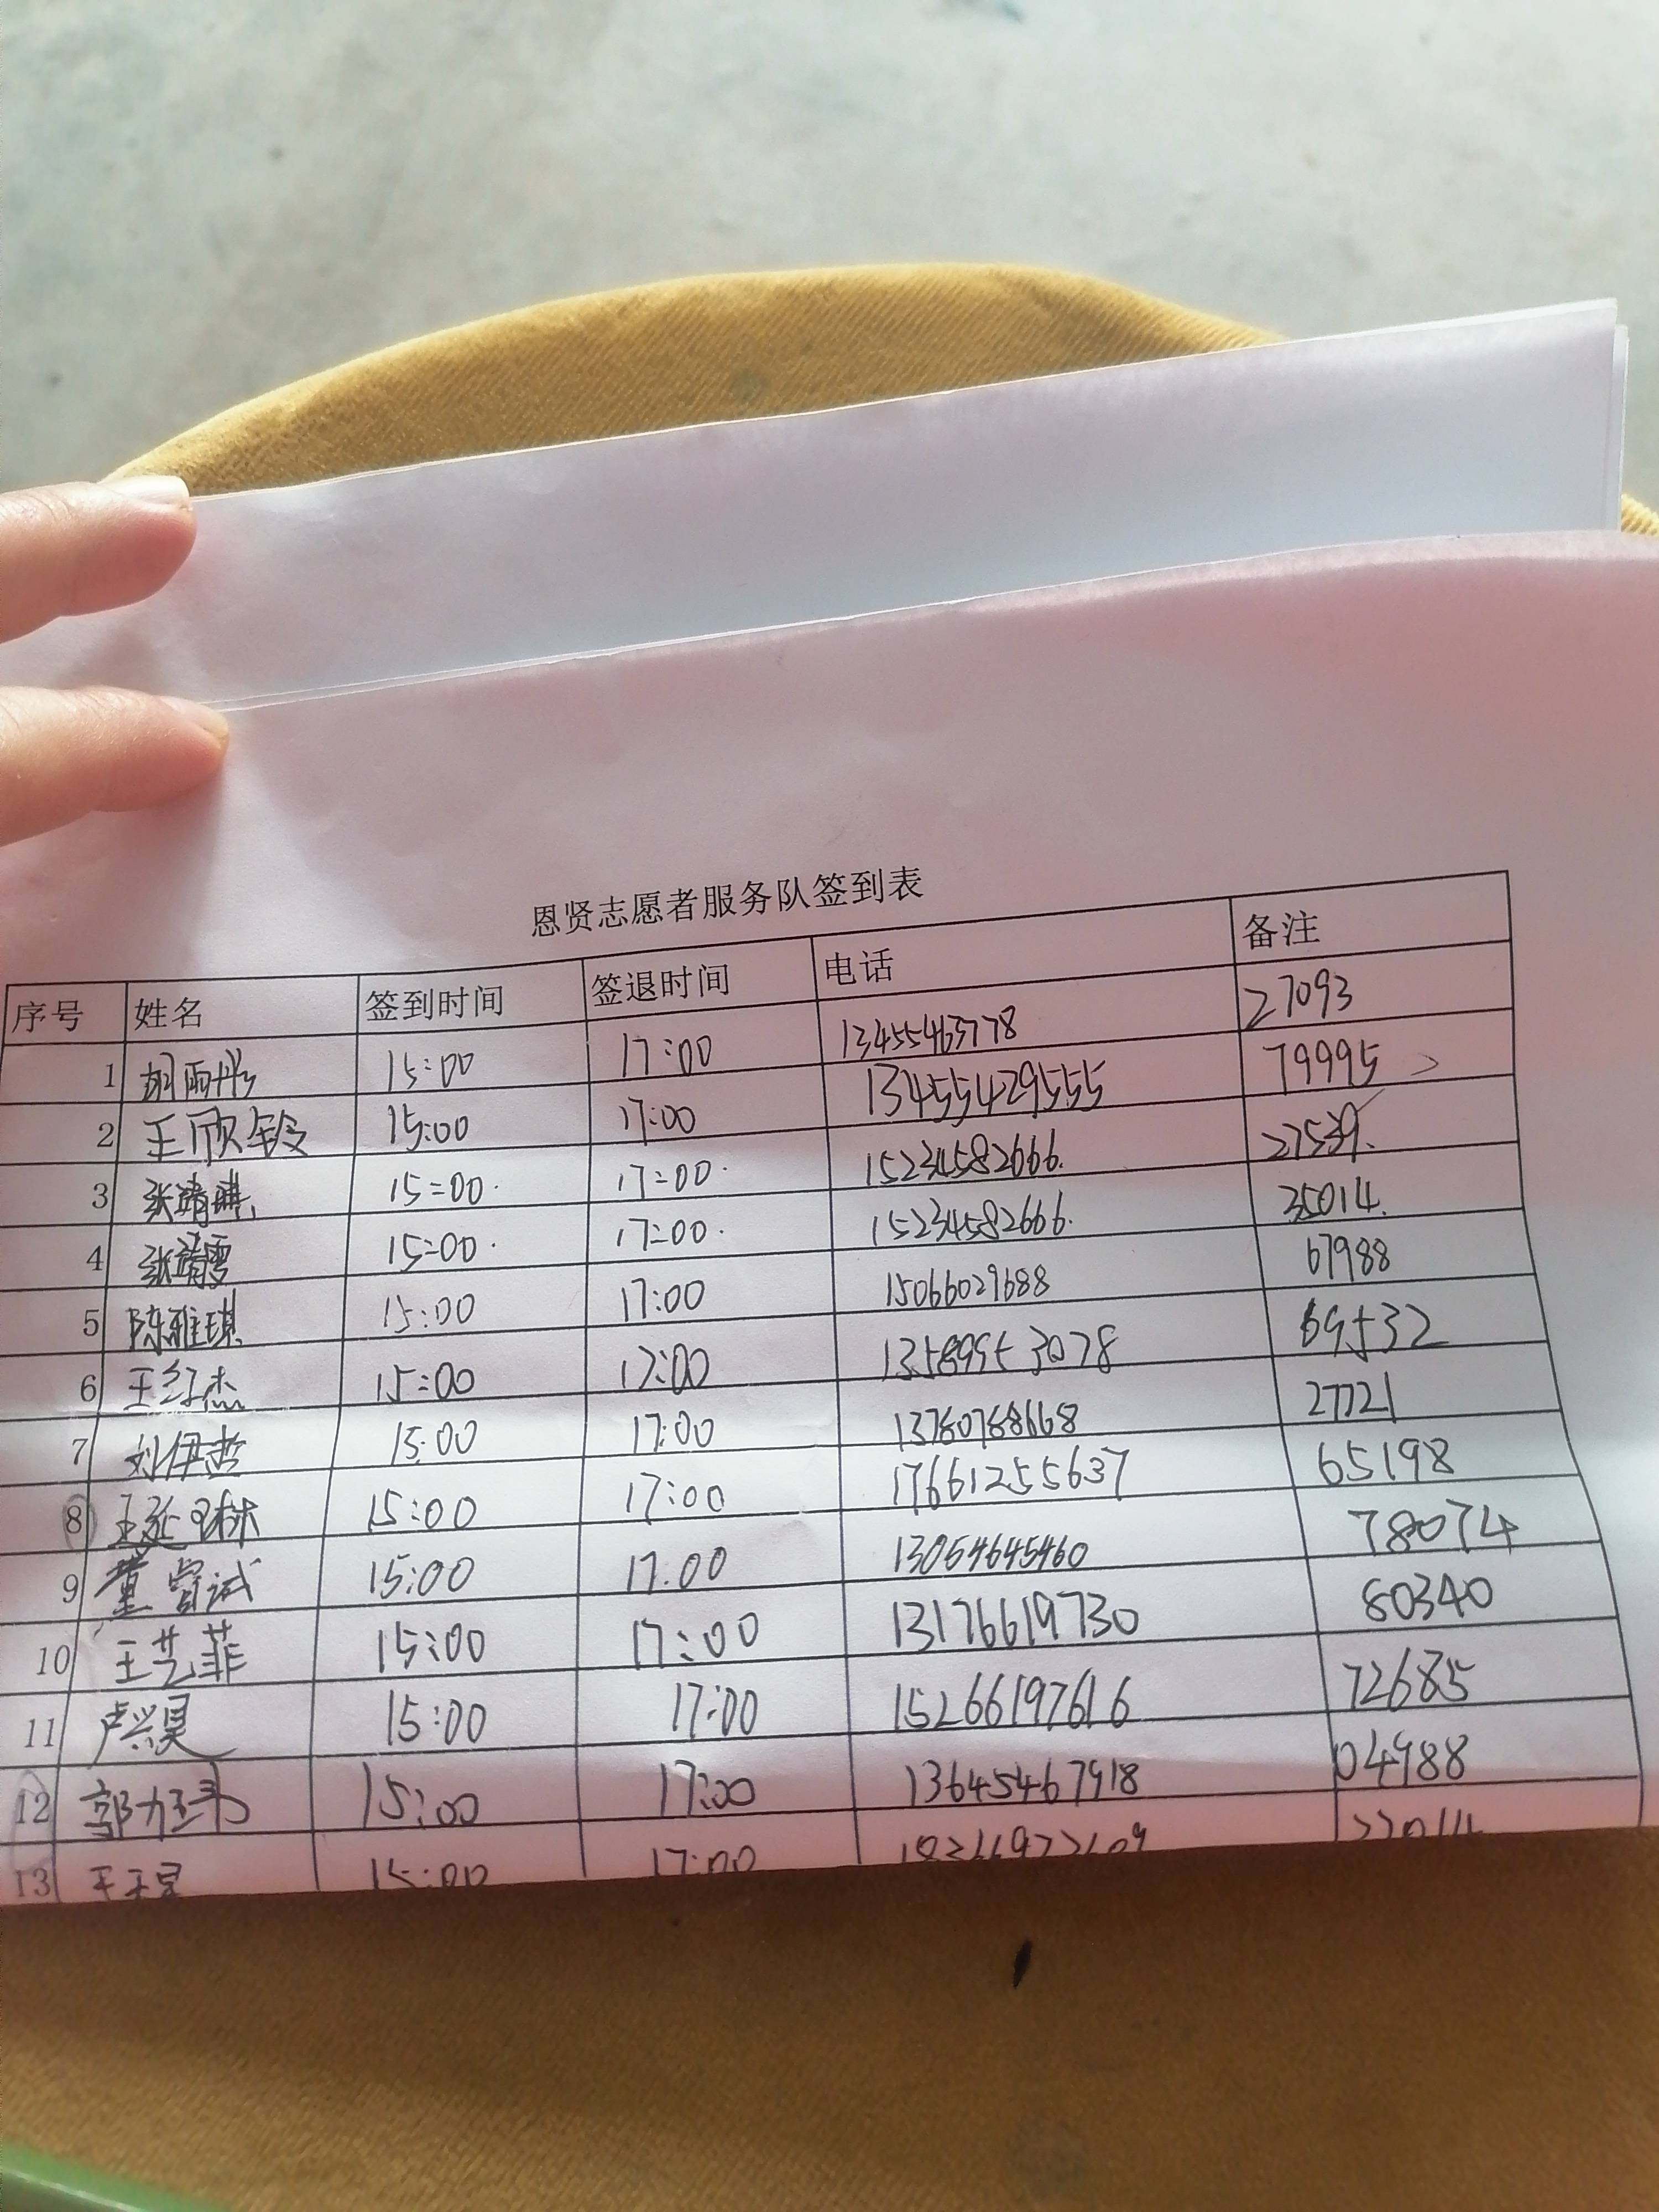 恩贤志愿者服务队签到表
序号 姓名 签到时间 签退时间 电话 备注
1 胡雨彤 15:00 17:00 13455463778 27093
2 王欣铃 15:00 17:00 13455429555 79995
3 张靖琪 15:00 17:00 15234582666 27539
4 张靖雪 15:00 17:00 15234582666 35014
5 陈雅琪 15:00 17:00 15066029688 67988
6 王红杰 15:00 17:00 13589953078 69532
7 刘伊哲 15:00 17:00 13780788668 27721
8 王延琳 15:00 17:00 17661255637 65198
9 董 试 15:00 17:00 13054645460 78074
10 王艺菲 15:00 17:00 13176619730 80340
11 卢兴昊 15:00 17:00 15266197616 72685
12 郭 15:00 17:00 13645467918 04988
13 王 15:00 17:00